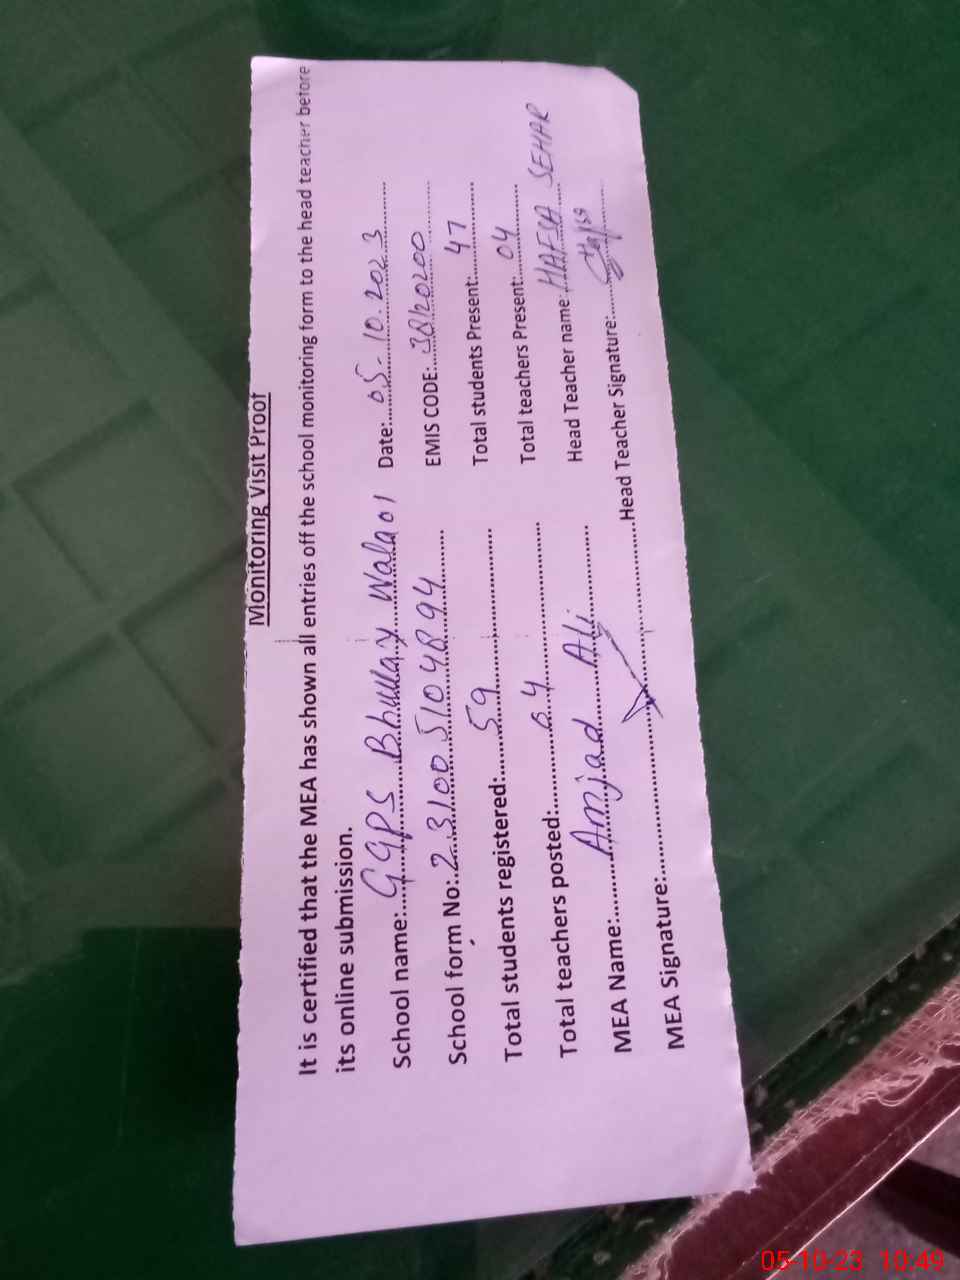 Monitoring Visit Proof
It is certified that the MEA has shown all entries off the school monitoring form to the head teacher before
its online submission.
School name:.....GGPS Bhullay Wala 01 Date:....05-10.2023
School form No:..231005104894 EMIS CODE:...38120200
Total students registered:......59 Total students Present:....47
Total teachers posted:......04 Total teachers Present:....04
MEA Name:......Amjad Ali Head Teacher name:.HAFSA SEHAR
MEA Signature:.......Head Teacher Signature:.....
05-10-23 10:49